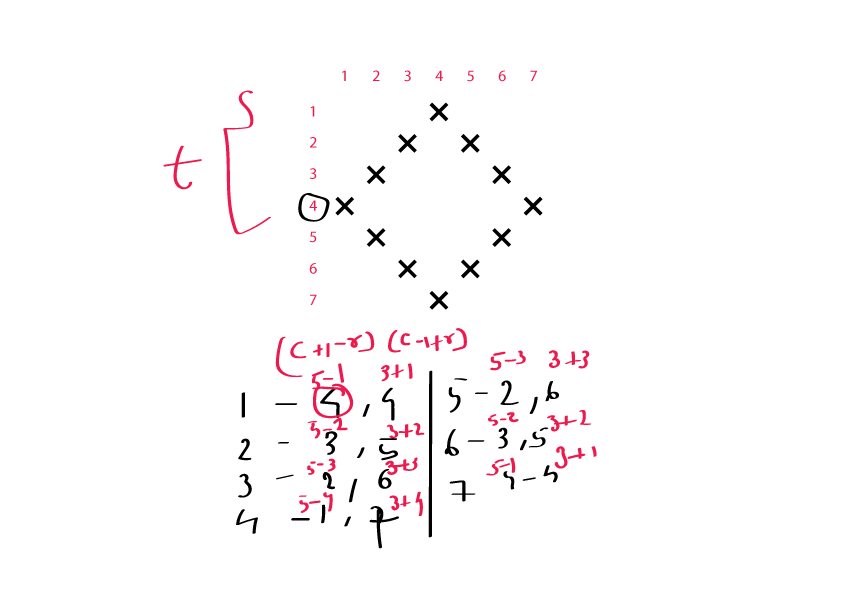 1 2 3 4 5 6 7
S
1
2
t
3
4
5
6
7
(C+1-r) (C-1+r)
5-1 3+1
1 - 4, 4
5-2 3+2
2 - 3, 5
5-3 3+3
3 - 2, 6
5-4 3+4
4 - 1, 7
5-3 3+3
5 - 2, 6
5-2 3+2
6 - 3, 5
5-1 3+1
7 4 - 4